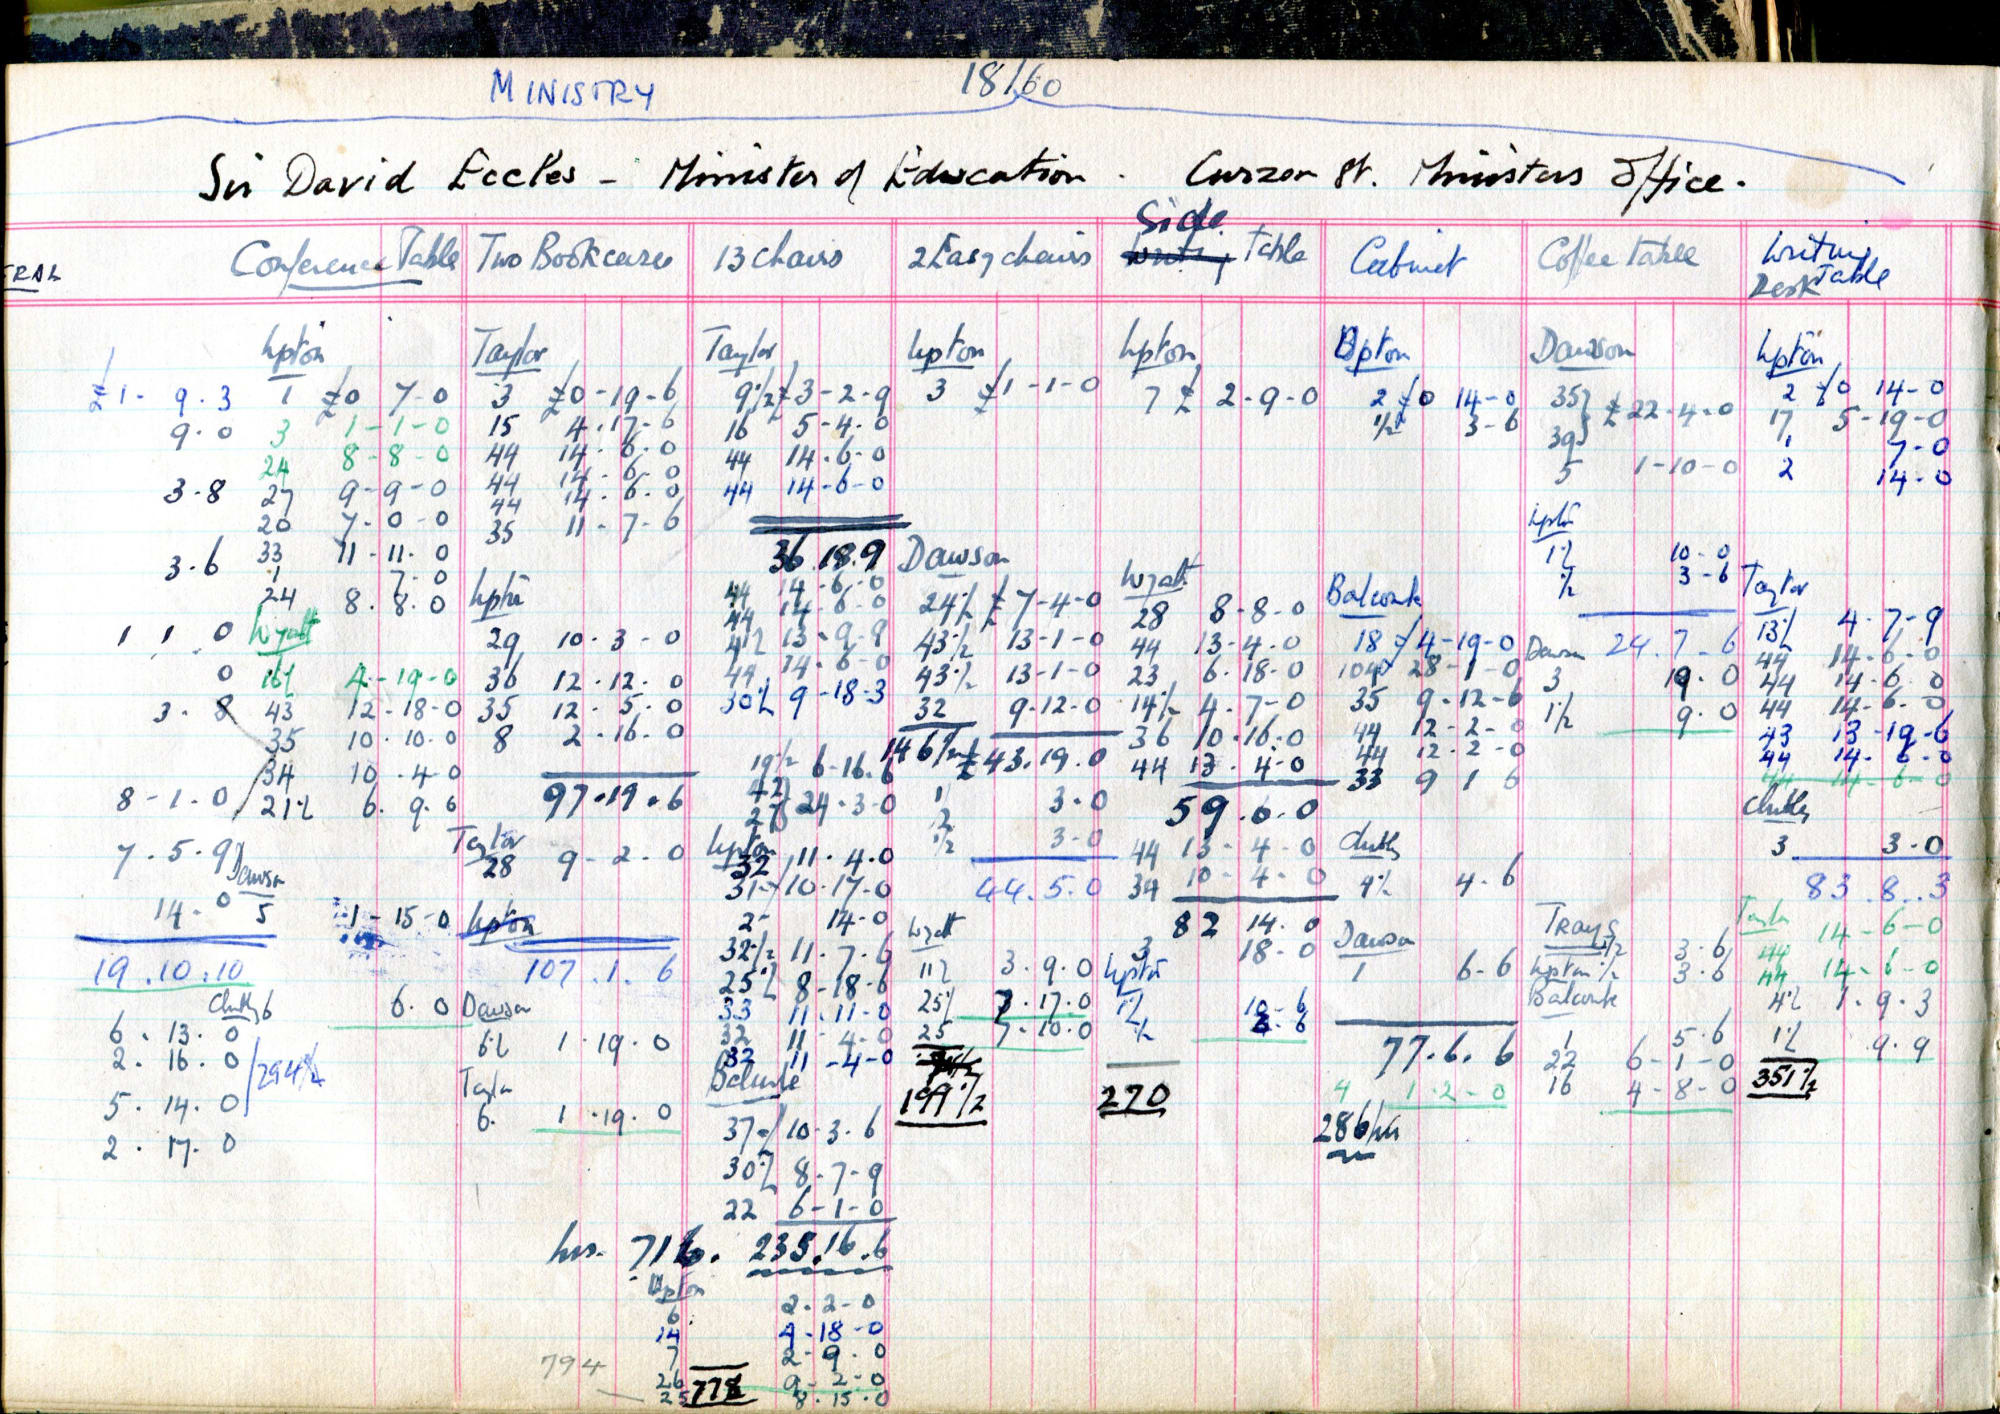 MINISTRY 18/60
Sir David Eccles - Minister of Education. Curzon St. Ministers Office.
RAL
Conference Table
£1- 9.3
9.0
3.8
3.6
1 1 0
0
3. 8
8-1.0
7.5.9
14.0
19.10.10
6.13.0
2.16.0
5.14.0
2.17.0
294½
Upton
1 £0 7-0
3 1-1-0
24 8-8-0
27 9-9-0
20 7-0-0
33 11-11.0
1 7-0
24 8.8.0
Wyatt
16½ 4-19-0
43 12-18-0
35 10.10.0
34 10.4-0
21½ 6.9.6
Dawson
5 1-15-0
Clubley 6 6.0
Two Bookcases
Taylor
3 £0-19-6
15 4.17-6
44 14.6.0
44 14-6-0
44 14.6.0
35 11-7-6
Upton
29 10.3-0
36 12.12.0
35 12.5.0
8 2.16.0
97.19.6
Taylor
28 9-2.0
Upton
107.1.6
Dawson
6½ 1.19.0
Taylor
6. 1.19.0
13 chairs
Taylor
9½ £3-2-9
16 5-4.0
44 14-6-0
44 14-6-0
36.18.9
44 14-6-0
44 14-6-0
41½ 13-9-9
44 14-6-0
30½ 9-18-3
19½ 6-16.6
42
27 24.3-0
Upton
32 11.4.0
31 10.17-0
2 14-0
32½ 11.7.6
25½ 8-18-6
33 11-11-0
32 11-4-0
32 11-4-0
Balcombe
37 10.3.6
30½ 8.7-9
22 6-1-0
hrs. 716. 235.16.6
Upton
6 2.2-0
14 4-18-0
7 2-9.0
26 9-2-0
25 8.15.0
794
778
2 Easy chairs
Upton
3 £1-1-0
Dawson
24½ £7-4-0
43½ 13-1-0
43½ 13-1-0
32 9-12-0
146½ £43.19.0
½ 3.0
½ 3-0
44.5.0
Wyatt
11½ 3.9.0
25½ 7.17.0
25 7-10.0
199½
Side Table
Upton
7 £2-9-0
Wyatt
28 8-8-0
44 13-4.0
23 6.18-0
14½ 4.7-0
36 10.16.0
44 13.4.0
59.6.0
44 13-4-0
34 10-4-0
82 14.0
3 18-0
Upton
1½ 10-6
½ 3.6
270
Cabinet
Upton
2 £0 14-0
½ 3-6
Balcombe
18 £4-19-0
104 28-1-0
35 9-12-6
44 12-2-0
44 12-2-0
33 9 1 6
Clubley
4½ 4-6
Dawson
1 6-6
77.6.6
4 1-2-0
286 hrs
Coffee Table
Dawson
35
39 £22.4.0
5 1-10-0
Upton
1½ 10-0
½ 3-6
Dawson 24.7.6
3 19.0
1½ 9.0
Trays
½ 3.6
Upton ½ 3.6
Balcombe
1 5.6
22 6-1-0
16 4-8-0
Writing Table
Desk
Upton
2 £0 14-0
17 5-19-0
1 7-0
2 14-0
Taylor
13½ 4-7-9
44 14-6-0
44 14-6-0
44 14-6-0
43 13-19-6
44 14-6-0
44 14-6-0
Clubley
3 3-0
83.8.3
Taylor
44 14-6-0
44 14-6-0
4½ 1.9.3
1½ 9.9
351½